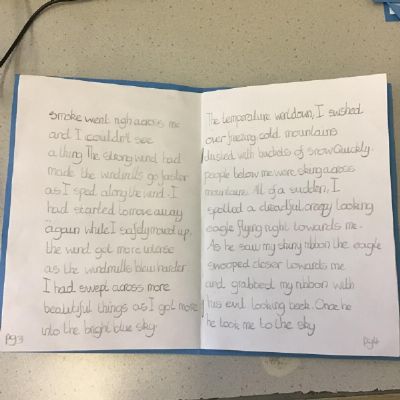 smoke went righ across me
and I couldn't see
a thing The strong wind had
made the windmills go faster
as I sped along the wind. I
had started to move away
again while I safely moved up.
the wind got more worse
as the windmills blew harder.
I had swept across more
beautiful things as I got more
into the bright blue sky.
Pg3
The temperature went down, I
over freezing cold mountains
dusted with buckets of snow Quickly.
people below me were skiing across
mountains. All of a sudden, I
spotted a dreadful creepy looking
eagle flying right towards me.
As he saw my shiny ribbon the eagle
swooped closer towards me
and grabbed my ribbon with
his evil looking beek. Once he
he took me to the sky
Pg4